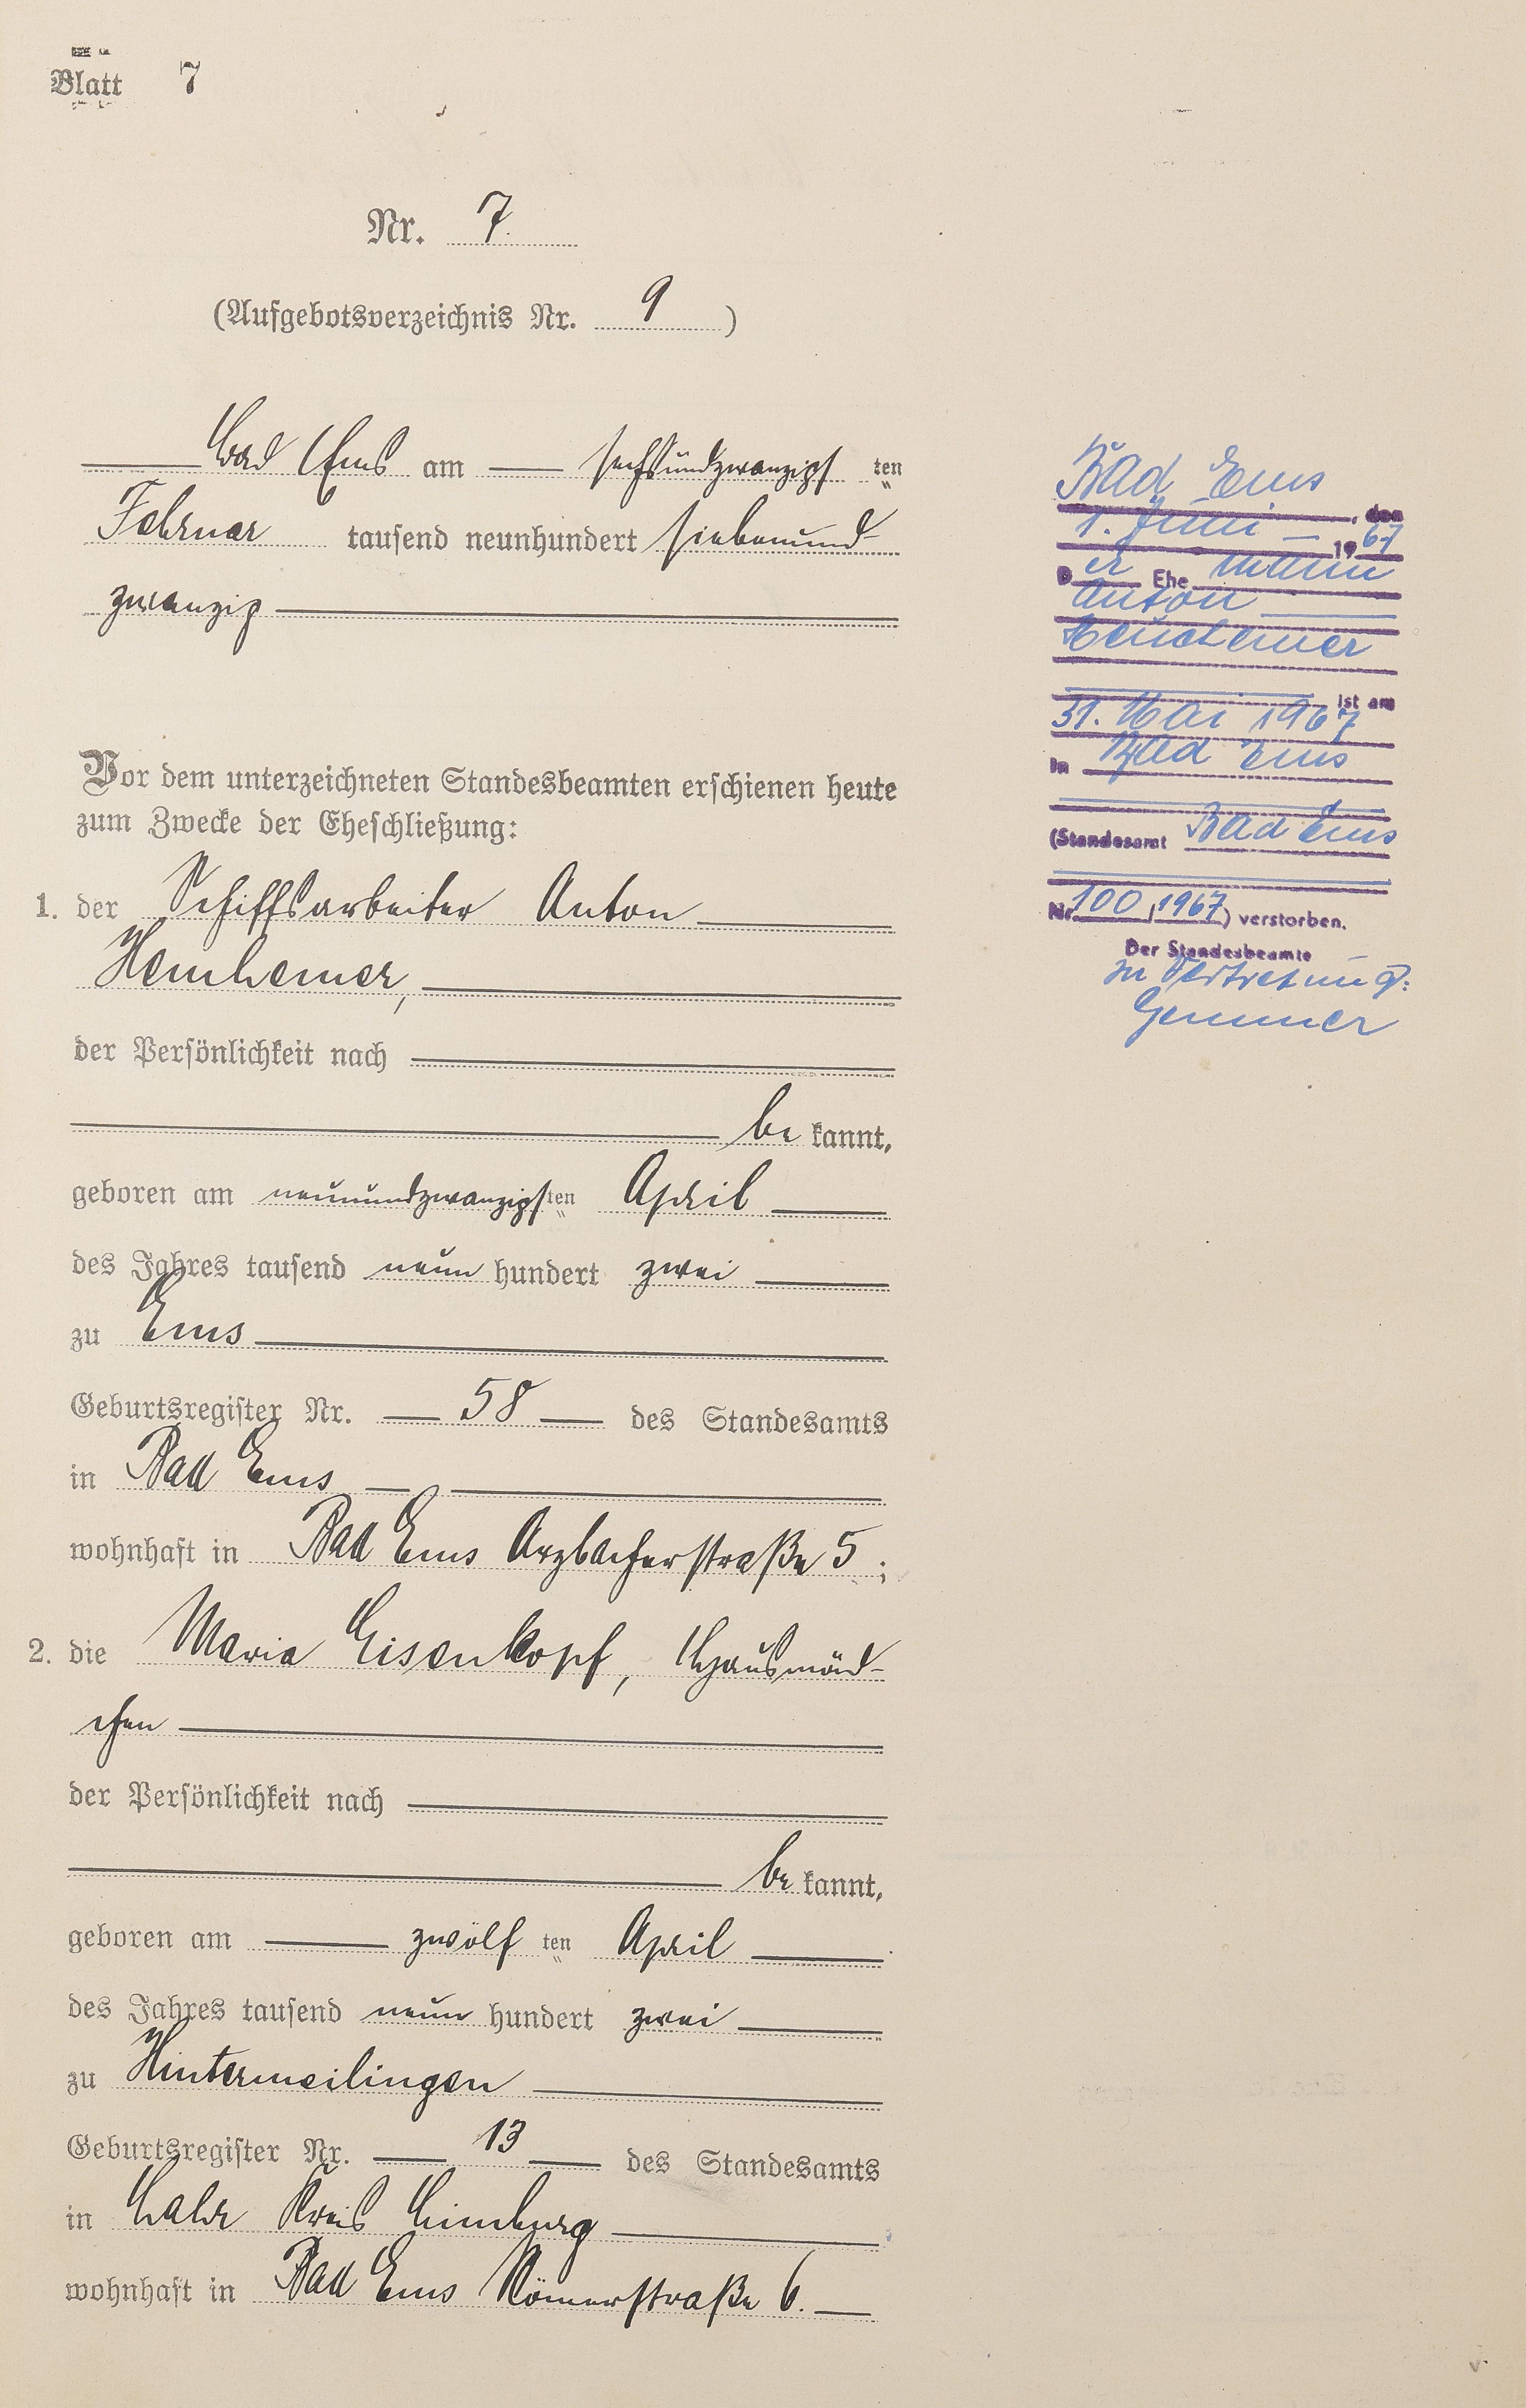 Blatt 7
Nr. 7.
(Aufgebotsverzeichnis Nr. 9)
Bad Ems am sechsundzwanzigsten
Februar tausend neunhundert siebenund-
zwanzig
Vor dem unterzeichneten Standesbeamten erschienen heute
zum Zwecke der Eheschließung:
1. der Schiffsarbeiter Anton
der Persönlichkeit nach
be kannt,
geboren am neunundzwanzigsten April
des Jahres tausend neun hundert zwei
zu Ems
Geburtsregister Nr. 58 des Standesamts
in Bad Ems
wohnhaft in Bad Ems Arzbacherstraße 5;
2. die Maria Eisenkopf, Hausmäd-
chen
der Persönlichkeit nach
be kannt,
geboren am zwölften April
des Jahres tausend neun hundert zwei
zu Hintermeilingen
Geburtsregister Nr. 13 des Standesamts
in Lahr Kreis Limburg
wohnhaft in Bad Ems Römerstraße 6.
Bad Ems, den
1. Juni 1967
Der Ehemann
Anton
ist am
31. Mai 1967
in Bad Ems
(Standesamt Bad Ems
Nr. 100/1967) verstorben.
Der Standesbeamte
In Vertretung: